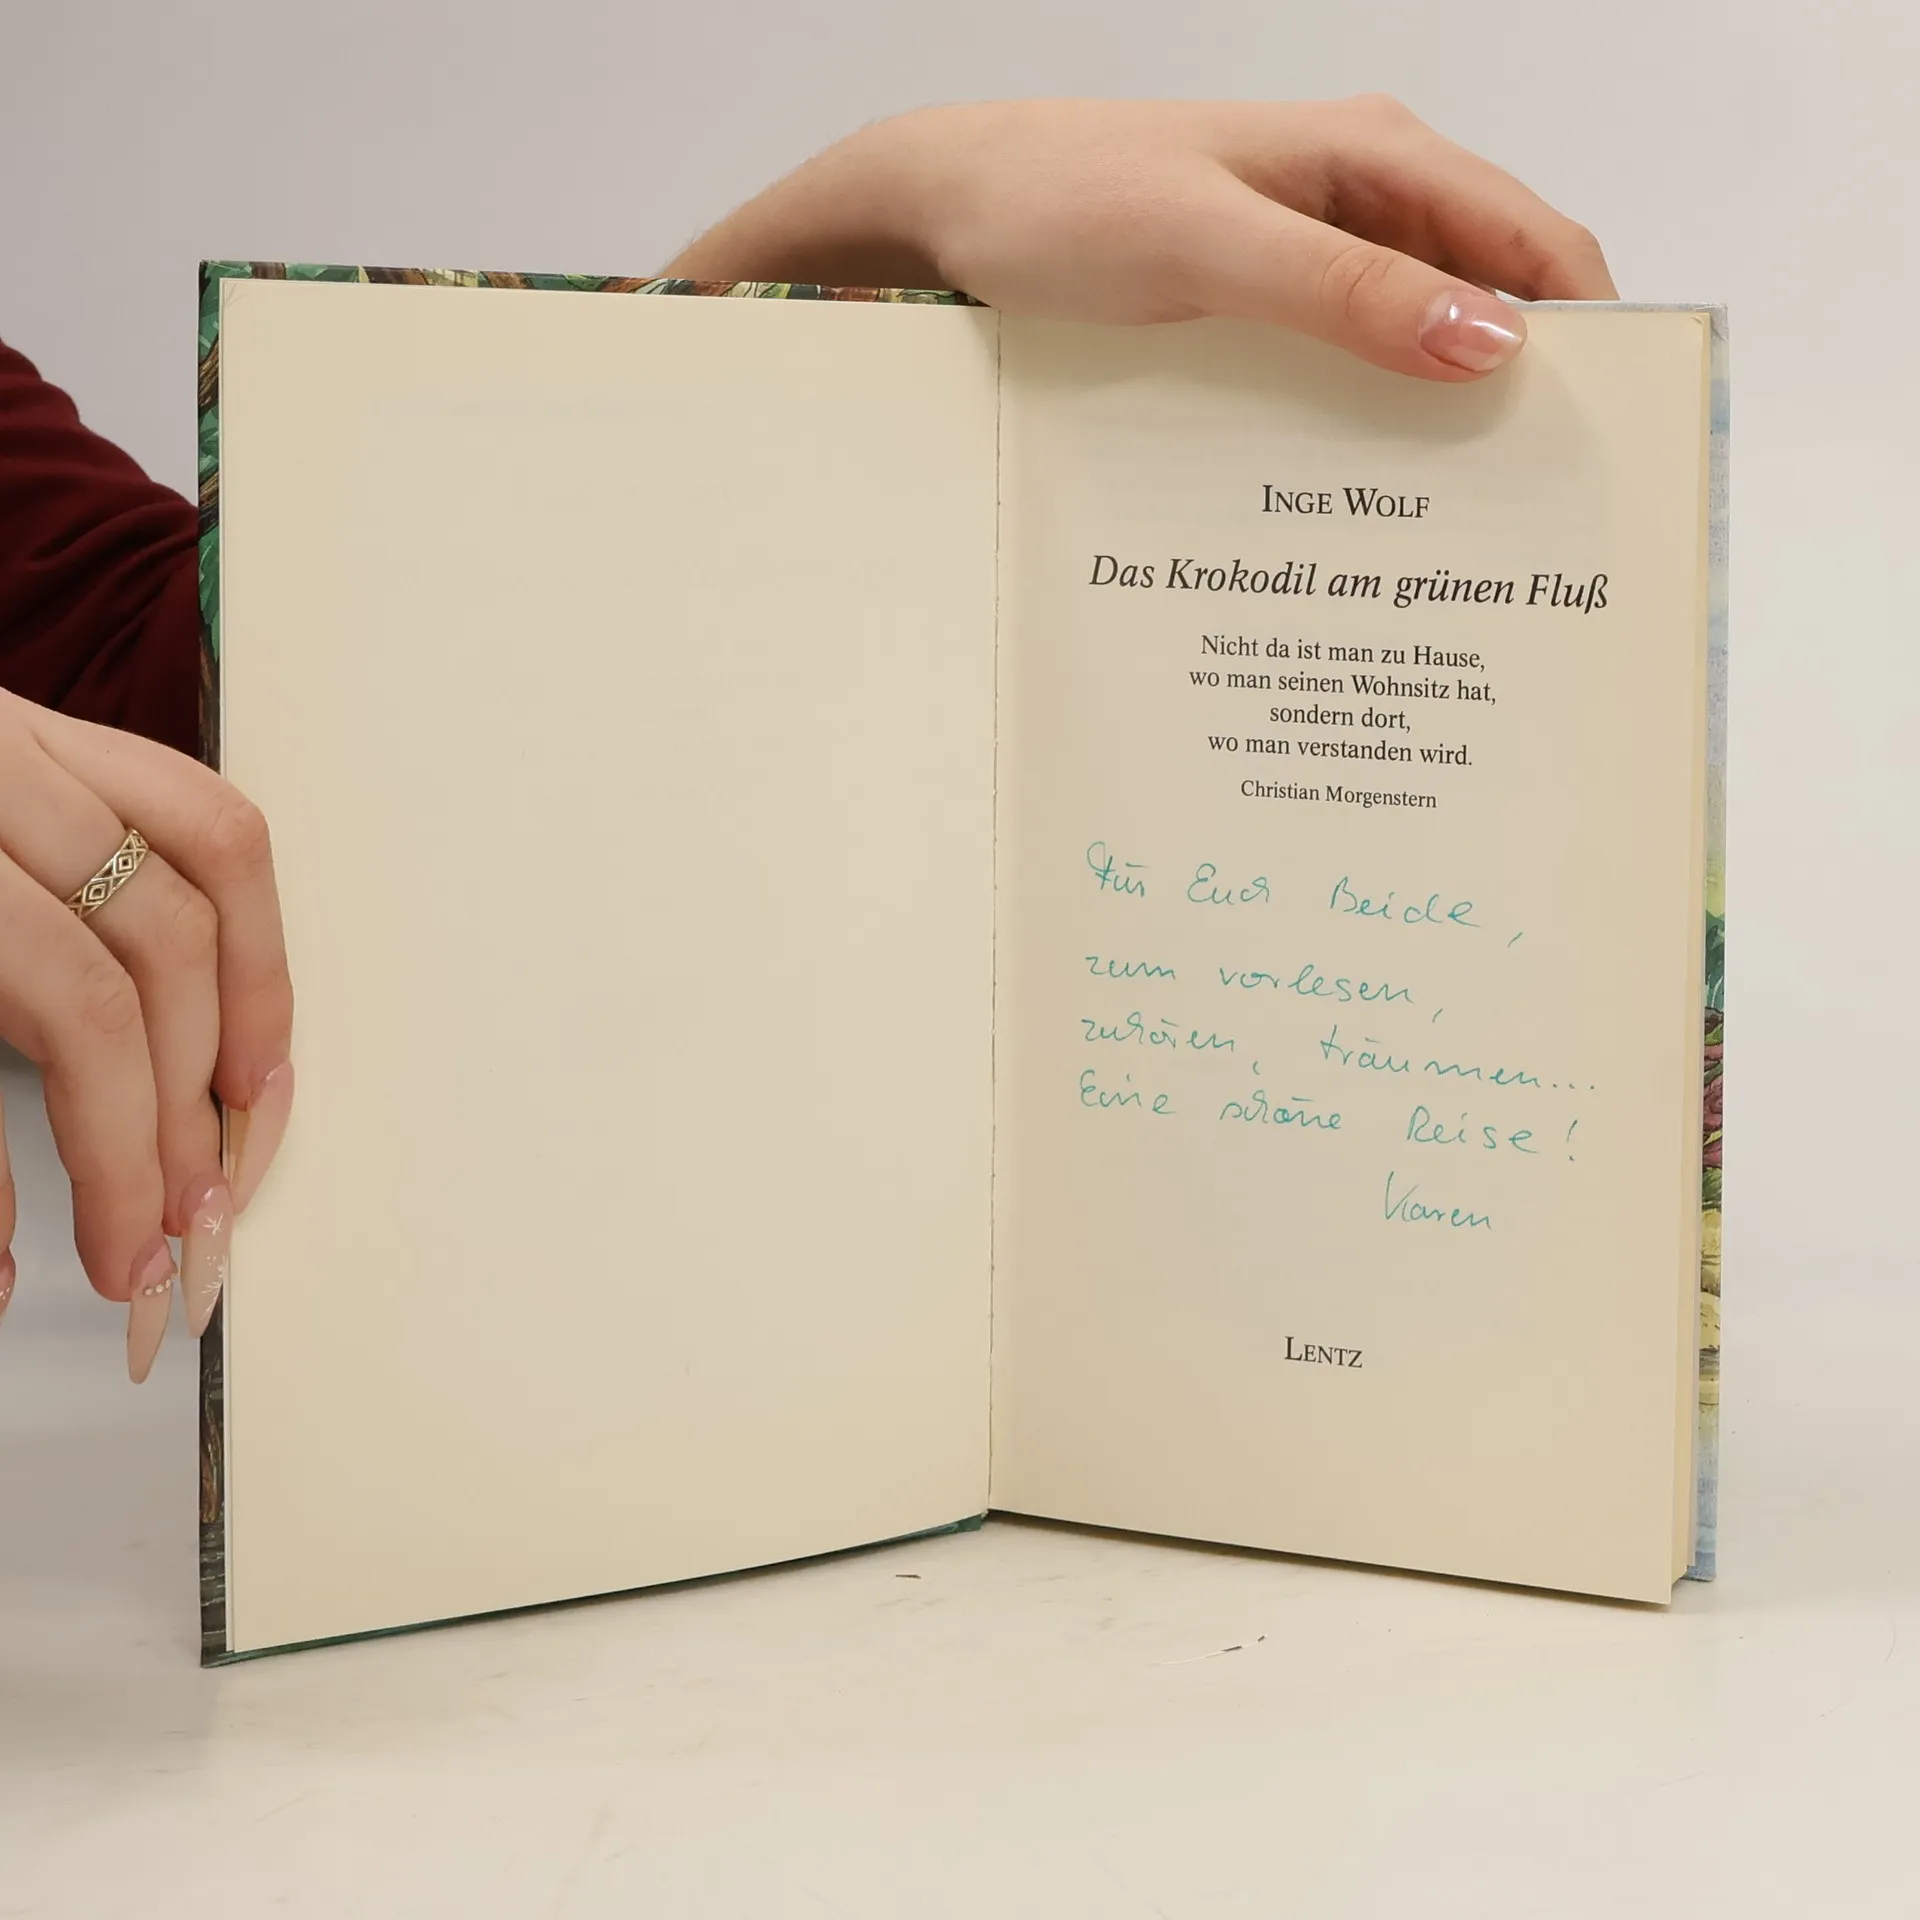 INGE WOLF
Das Krokodil am grünen Fluß
Nicht da ist man zu Hause,
wo man seinen Wohnsitz hat,
sondern dort,
wo man verstanden wird.
Christian Morgenstern
Für Euch Beide,
zum vorlesen,
zuhören, träumen...
Eine schöne Reise!
Karen
LENTZ